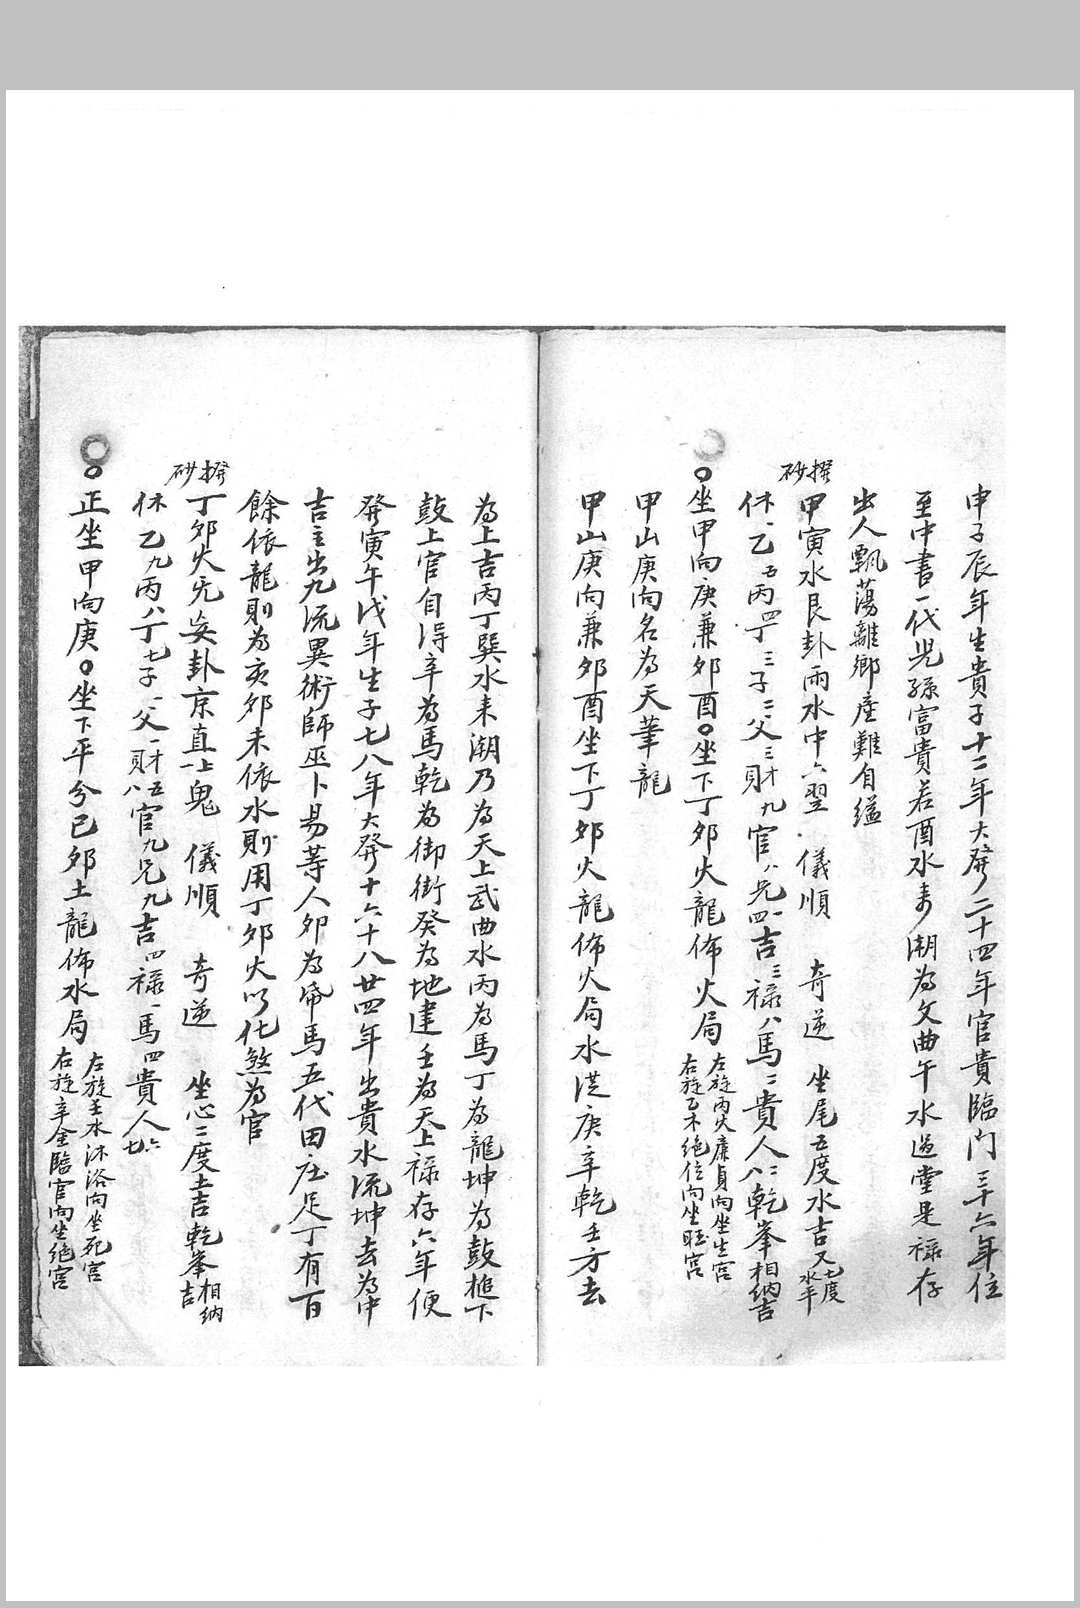 申子辰年生貴子十二年大發二十四年官貴臨門三十六年位
至中書一代児孫富貴若酉水来潮為文曲午水過堂是祿存
出人飄蕩離鄉産難自縊
撥砂
甲寅水艮卦雨水中六翌 儀順 奇逆 坐尾五度水吉又七度水平
休一乙五丙四丁三子二父三財九官八兄四吉三祿八馬二貴人二八乾峯相納吉
○坐甲向庚兼夘酉○坐下丁夘火龍佈火局 左旋丙火廉貞向坐生宮 右旋乙木絕位向坐旺宮
甲山庚向名為天輩龍
甲山庚向兼夘酉坐下丁夘火龍佈火局水從庚辛乾壬方去
為上吉丙丁巽水来潮乃為天上武曲水丙為馬丁為龍坤為鼓槌下
鼓上官自得辛為馬乾為御街癸為地建壬為天上祿存六年便
發寅午戌年生子七八年大發十六十八廿四年出貴水流坤去為中
吉主出九流異術師巫卜易等人夘為帝馬五代田庄足丁有百
餘依龍則為亥夘未依水則用丁夘火以化煞為官
撥砂
丁夘火旡妄卦京直上鬼 儀順 奇逆 坐心二度土吉乾峯相納吉
休一乙九丙八丁七子一父一財五八官九兄九吉四祿一馬四貴人六七
○正坐甲向庚○坐下平分己夘土龍佈水局 左旋壬水沐浴向坐死宮 右旋辛金臨官向坐絕宮